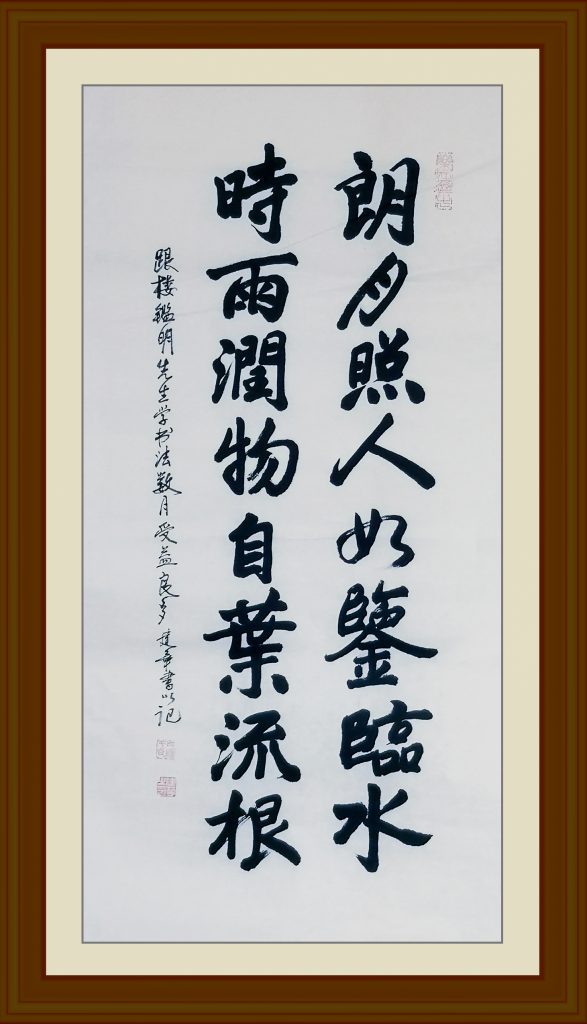 朗月照人如鑒臨水
時雨潤物自葉流根
跟楼鑑明先生学书法数月受益良多建章書以记